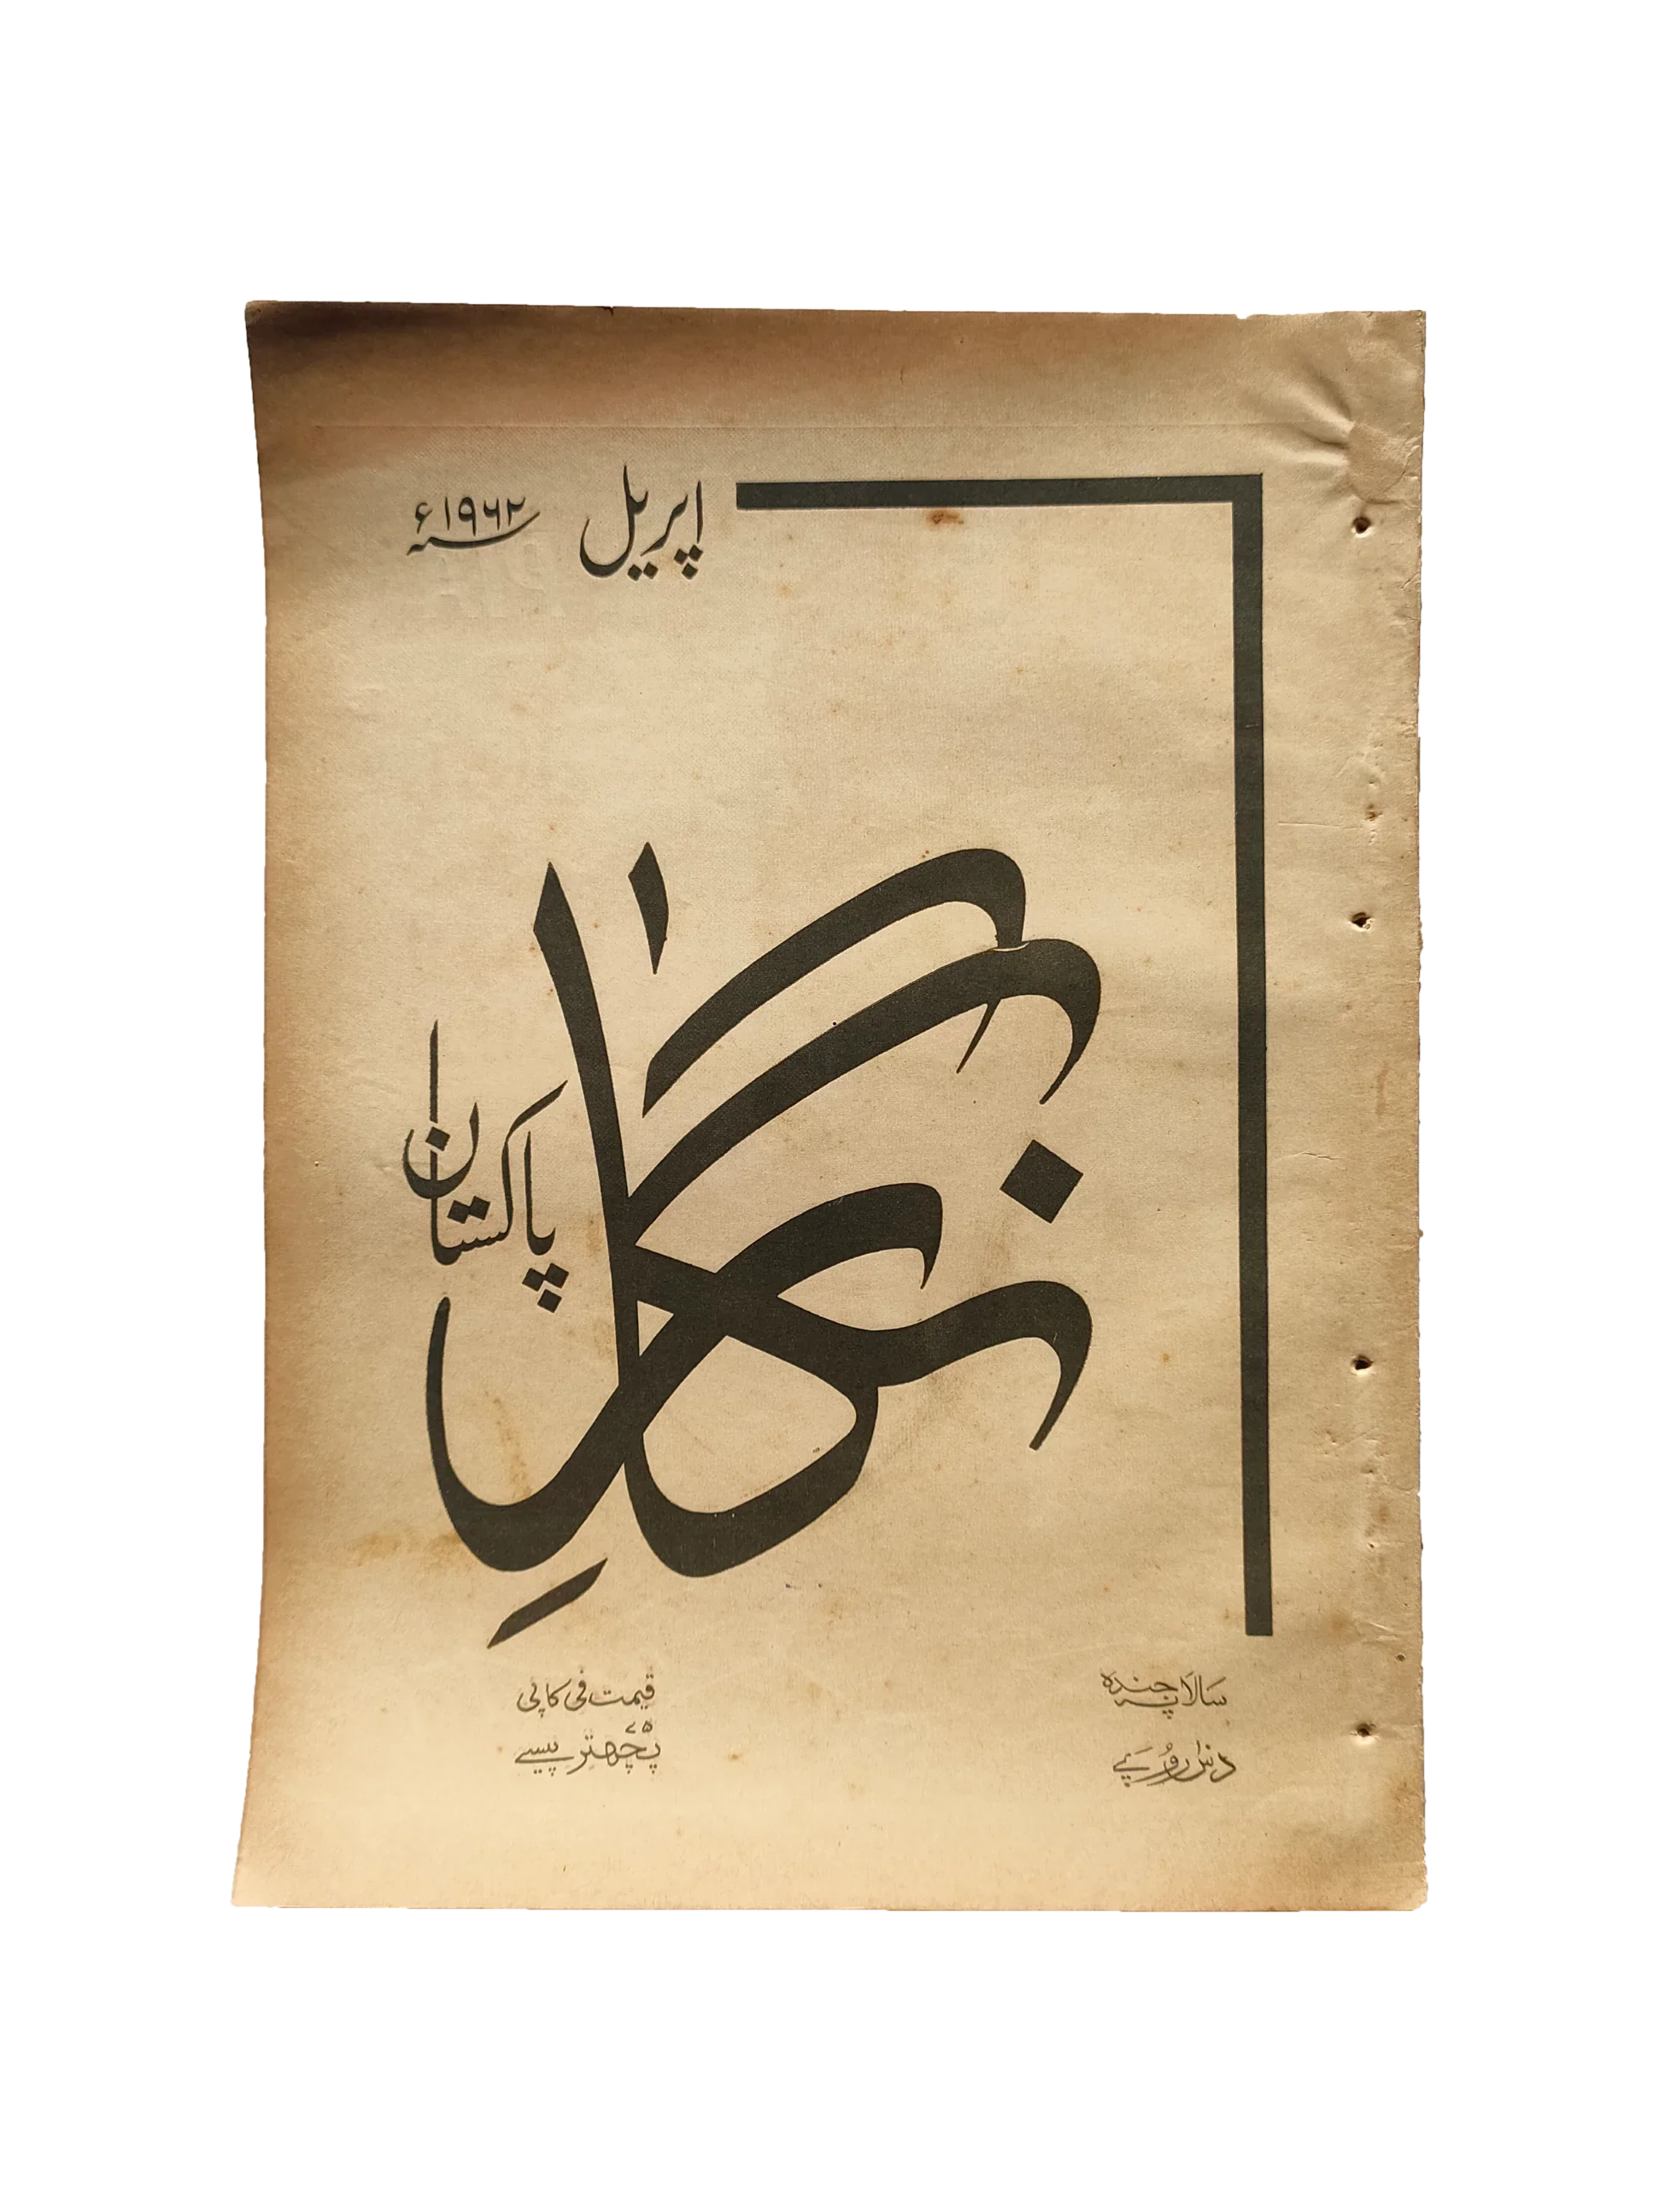 اپریل سنہ ۱۹۶۲ء
نگارِ
پاکستان
سالانہ چندہ
دس روپے
قیمت فی کاپی
۷۵
پچھتر پیسے